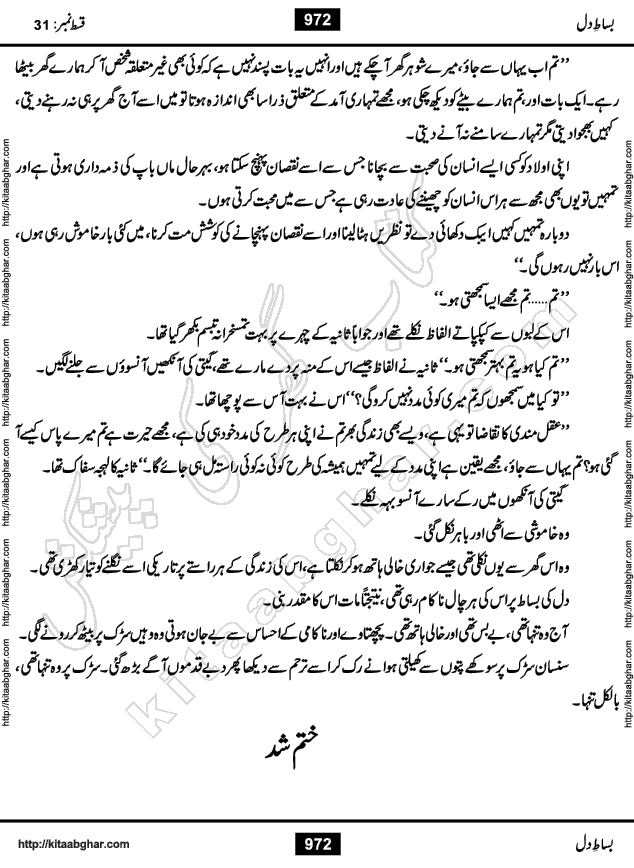 بساطِ دل
972
قسط نمبر: 31
’’تم اب یہاں سے جاؤ، میرے شوہر گھر آ چکے ہیں اور انہیں یہ بات پسند نہیں ہے کہ کوئی بھی غیر متعلقہ شخص آ کر ہمارے گھر بیٹھا
رہے۔ ایک بات اور، تم ہمارے بیٹے کو دیکھ چکی ہو، مجھے تمہاری آمد کے متعلق ذرا سا بھی اندازہ ہوتا تو میں اسے آج گھر پر ہی نہ رہنے دیتی،
کہیں بھجوا دیتی مگر تمہارے سامنے نہ آنے دیتی۔
اپنی اولاد کو کسی ایسے انسان کی صحبت سے بچانا جس سے اسے نقصان پہنچ سکتا ہو، بہرحال ماں باپ کی ذمہ داری ہوتی ہے اور
تمہیں تو یوں بھی مجھ سے ہر اس انسان کو چھیننے کی عادت رہی ہے جس سے میں محبت کرتی ہوں۔
دوبارہ تمہیں کہیں ایبک دکھائی دے تو نظریں ہٹا لینا اور اسے نقصان پہنچانے کی کوشش مت کرنا، میں کئی بار خاموش رہی ہوں،
اس بار نہیں رہوں گی۔‘‘
’’تم...... تم مجھے ایسا سمجھتی ہو۔‘‘
اس کے لبوں سے کپکپاتے الفاظ نکلے تھے اور جواباً ثانیہ کے چہرے پر بہت تمسخرانہ تبسم بکھر گیا تھا۔
’’تم کیا ہو یہ تم بہتر سمجھتی ہو۔‘‘ ثانیہ نے الفاظ جیسے اس کے منہ پر دے مارے تھے، گیتی کی آنکھیں آنسوؤں سے جلنے لگیں۔
’’تو کیا میں سمجھوں کہ تم میری کوئی مدد نہیں کرو گی؟‘‘ اس نے بہت آس سے پوچھا تھا۔
’’عقل مندی کا تقاضا تو یہی ہے، ویسے بھی زندگی بھر تم نے اپنی ہر طرح کی مدد خود ہی کی ہے، مجھے حیرت ہے تم میرے پاس کیسے آ
گئی ہو؟ تم یہاں سے جاؤ، مجھے یقین ہے اپنی مدد کے لیے تمہیں ہمیشہ کی طرح کوئی نہ کوئی راستہ مل ہی جائے گا۔‘‘ ثانیہ کا لہجہ سفاک تھا۔
گیتی کی آنکھوں میں رکے سارے آنسو بہہ نکلے۔
وہ خاموشی سے اٹھی اور باہر نکل گئی۔
وہ اس گھر سے یوں نکلی تھی جیسے جواری خالی ہاتھ ہو کر نکلتا ہے، اس کی زندگی کے ہر راستے پر تاریکی اسے نگلنے کو تیار کھڑی تھی۔
دل کی بساط پر اس کی ہر چال ناکام رہی تھی، نتیجتاً مات اس کا مقدر بنی۔
آج وہ تنہا تھی، بے بس تھی اور خالی ہاتھ تھی۔ پچھتاوے اور ناکامی کے احساس سے بے جان ہوتی وہ وہیں سڑک پر بیٹھ کر رونے لگی۔
سنسان سڑک پر سوکھے پتوں سے کھیلتی ہوا نے رک کر اسے ترحم سے دیکھا پھر دبے قدموں آگے بڑھ گئی۔ سڑک پر وہ تنہا تھی،
بالکل تنہا۔
ختم شد
http://kitaabghar.com
http://kitaabghar.com
http://kitaabghar.com
http://kitaabghar.com
http://kitaabghar.com
http://kitaabghar.com
http://kitaabghar.com
http://kitaabghar.com
http://kitaabghar.com
http://kitaabghar.com
http://kitaabghar.com
http://kitaabghar.com
کتاب گھر کی پیشکش
kitaabghar.com
بساطِ دل
972
http://kitaabghar.com